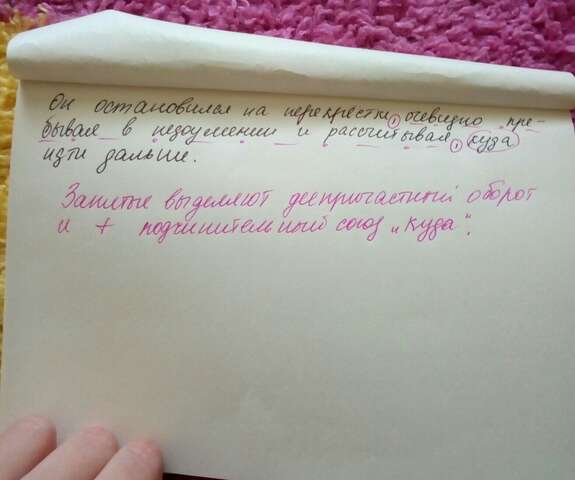 Он остановился на перекрёстке, очевидно пре-
бывая в недоумении и рассчитывая, куда
идти дальше.
Запятые выделяют деепричастный оборот
и + подчинительный союз „куда".